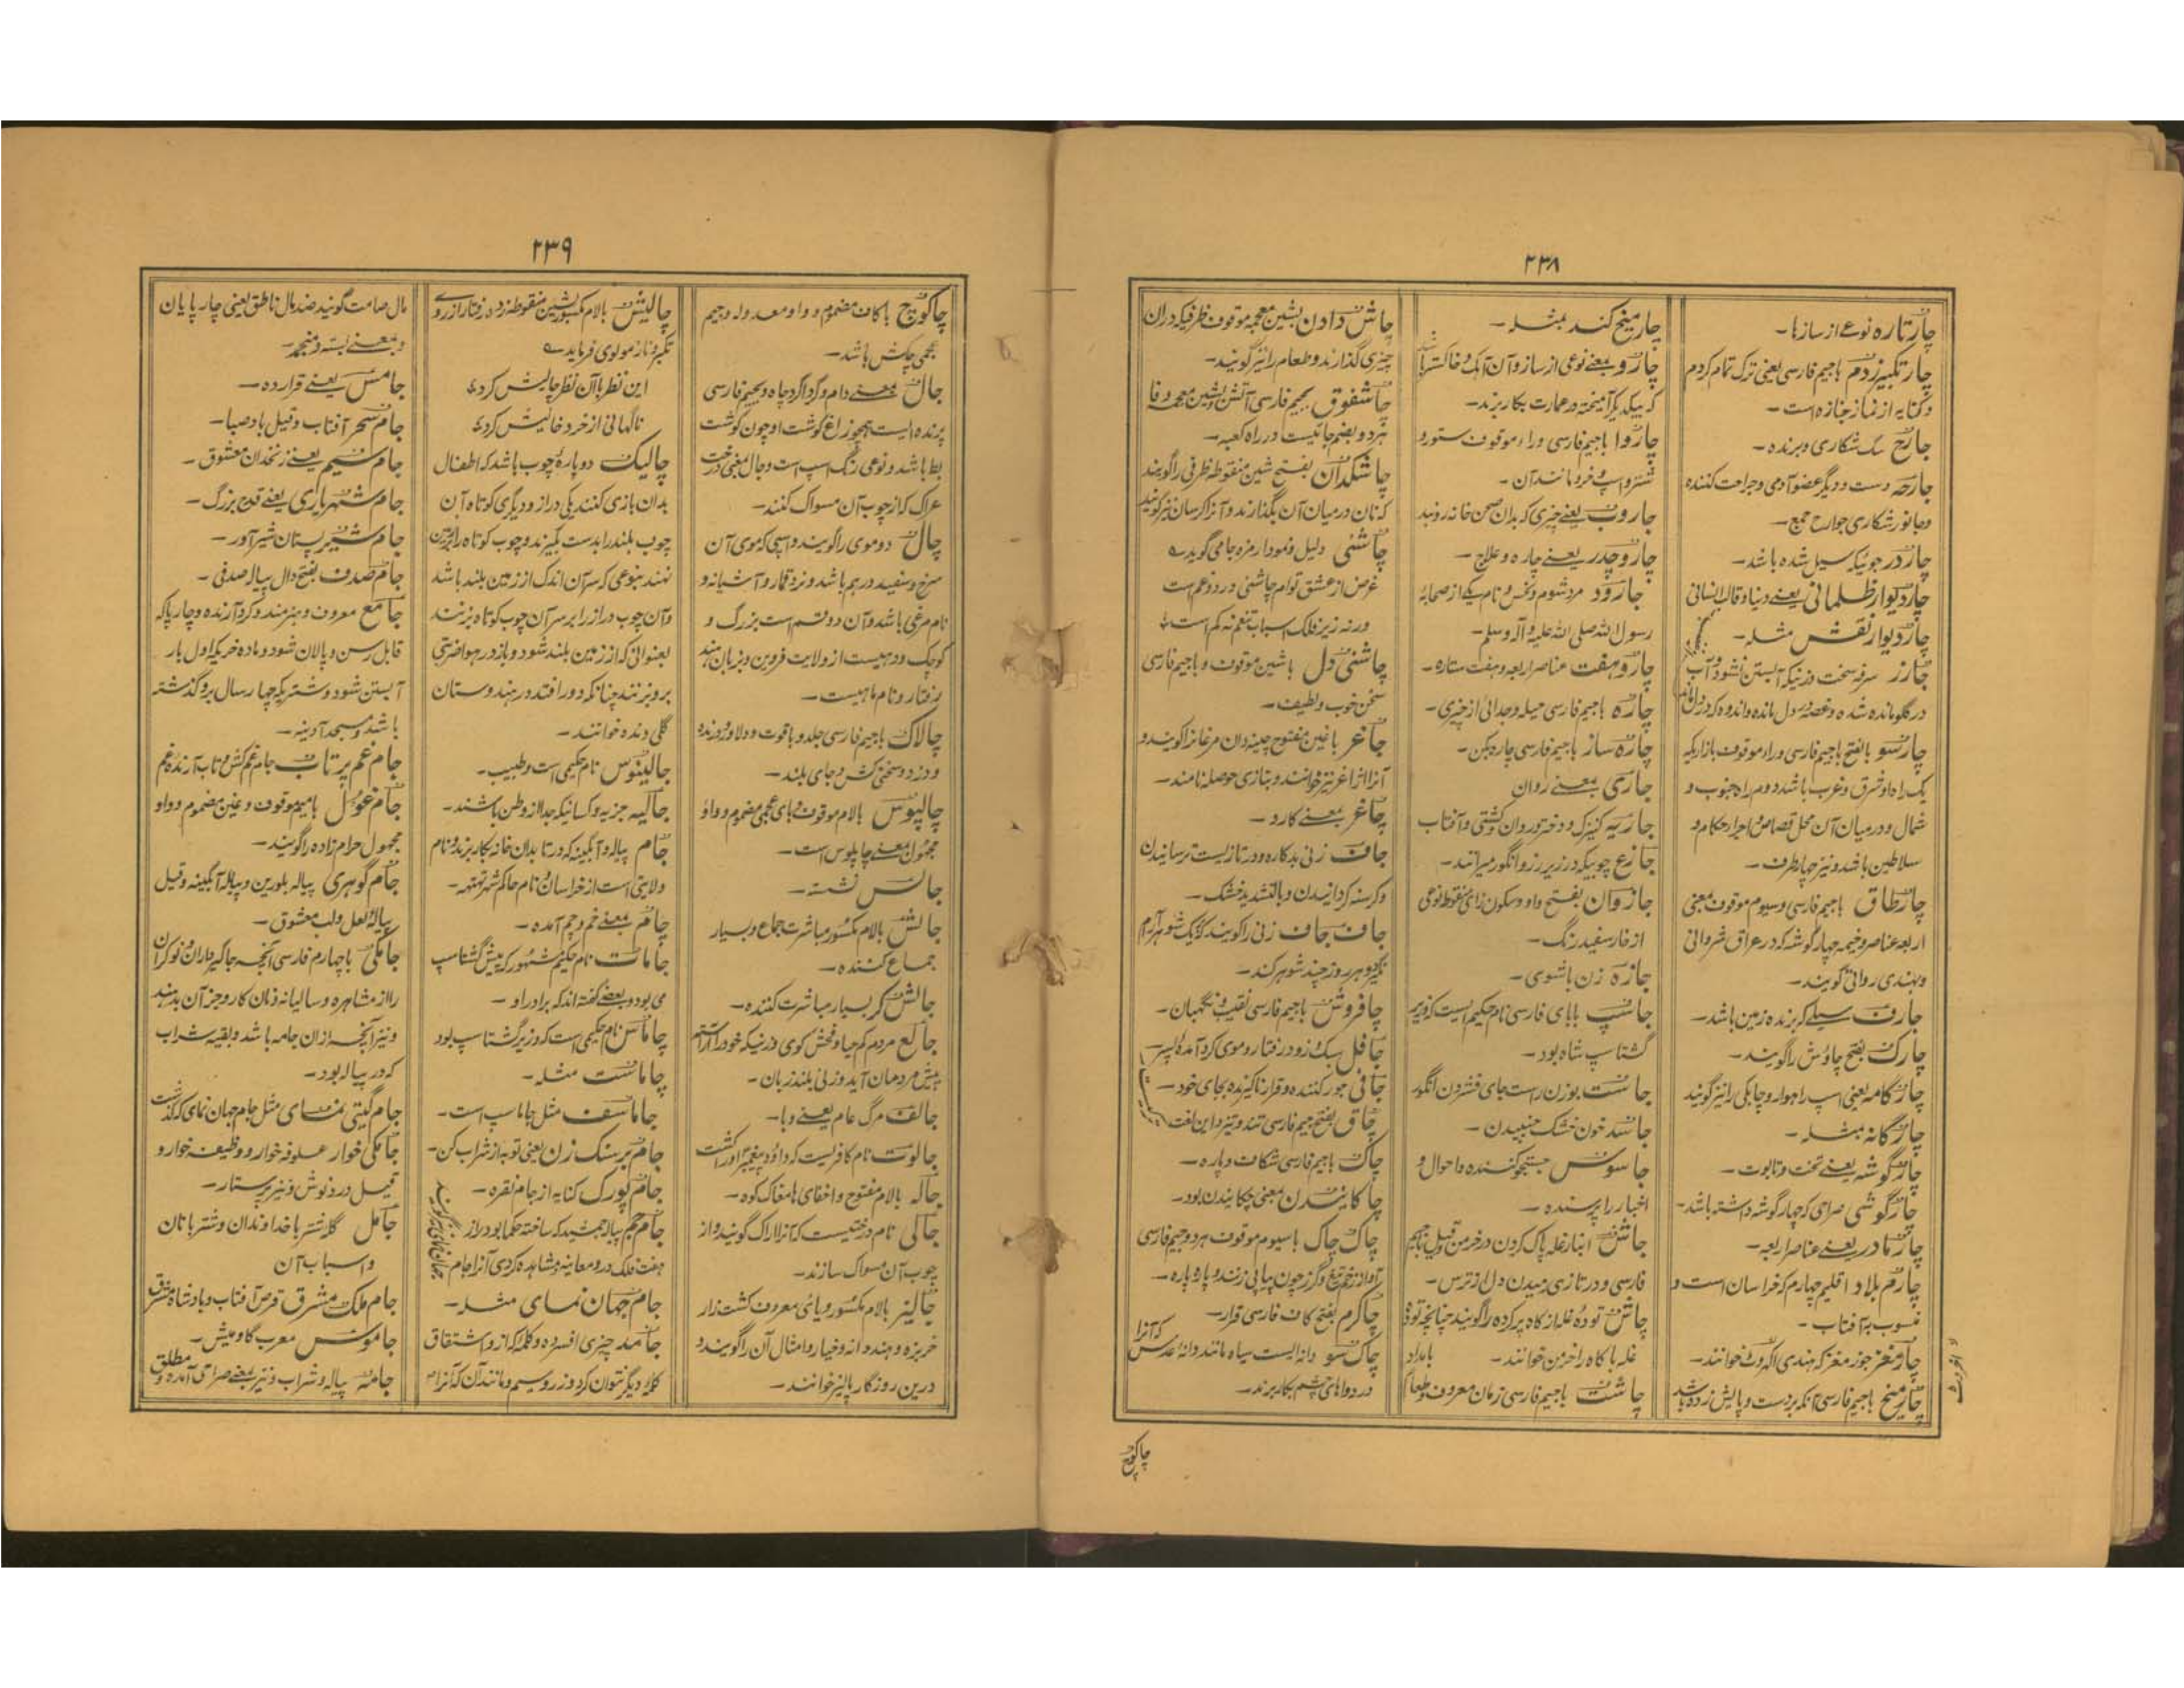 ۲۳۸
چارتاره نوعے از سازها۔
چارتکبیر زدم باجیم فارسی یعنی ترک تمام کردم
و کنایه از نماز جنازه است۔
جارح سگ شکاری و برنده۔
جارحه دست و دیگر عضو آدمی و جراحت کننده
و جانور شکاری جوارح جمع۔
چاردر جوئیکه سیل شده باشد۔
چاردیوار ظلمانی یعنے دنیا و قالب انسانی
چاردیوار نقش مثله۔
جارز سرفه سخت و زنیکه آبستن نشود و آب
در گلو مانده شده و غصه در دل مانده و اندوه که در دل ماند
چارسو بالفتح باجیم فارسی و راء موقوف بازاریکه
یک راه او شرق و غرب باشد دوم راه جنوب و
شمال و درمیان آن محل قصاص و اجرار حکام و
سلاطین باشد و نیز چهار طرف۔
چارطاق باجیم فارسی و سیوم موقوف معنی
اربعه عناصر و خیمه چهار گوشه که در عراق شروانی
و بهندی روانی گویند۔
جارف سیلے که برنده زمین باشد۔
چارک بفتح چاوش را گویند۔
چارگامه یعنی اسپ راهوار و چابکی را نیز گویند
چارگانه مثله۔
چارگوشه یعنے تخت و تابوت۔
چارگوشی صراحی که چهار گوشه داشته باشد۔
چارمادر یعنے عناصر اربعه۔
چارم بلاد اقلیم چهارم که خراسان است و
منسوب به آفتاب۔
چارمغز جوز مغز که بهندی اکهروٹ خوانند۔
چارمیخ باجیم فارسی آنکه بر دست و پایش زده باشد
چارمیخ کند مثله۔
چارو بمعنے نوعی از ساز و آن آهک و خاکستر باشد
که بیکدیگر آمیخته در عمارت بکار برند۔
چاروا باجیم فارسی و راء موقوف ستور و
شتر و اسپ و خر و مانند آن۔
جاروب یعنے چیزی که بدان صحن خانه روبند
چاروچدر یعنے چاره و علاج۔
جارود مرد شوم و نحس و نام یکے از صحابۀ
رسول الله صلی الله علیه و آله وسلم۔
چاروهفت عناصر اربعه و هفت ستاره۔
چاره باجیم فارسی حیله و جدائی از چیزی۔
چاره ساز باجیم فارسی چاره کن۔
جاری بمعنے روان
جاریه کنیزک و دختر و روان و کشتی و آفتاب
جازع چوبیکه در زیر رز و انگور میرانند۔
جازوان بفتح واو و سکون زای منقوط نوعی
از خار سفید رنگ۔
جازه زن باشوی۔
جاسپ بابای فارسی نام حکیم ایست که وزیر
گشتاسپ شاه بود۔
جاست بوزن راست جای فشردن انگور
جاسد خون خشک چسپیدن۔
جاسوس جستجو کننده و احوال و
اخبار را پرسنده۔
جاش انبار غله پاک کردن در خرمن و قیل باجیم
فارسی و در تازی رمیدن دل از ترس۔
چاش تودۀ غله از کاه پر کرده را گویند چنانچه تودۀ
غله با کاه را خرمن خوانند۔
چاشت باجیم فارسی زمان معروف و طعام بامداد
چاش دادن بشین معجمه موقوف ظرفیکه دران
چیزی گذارند و طعام را نیز گویند۔
جاشفوق بجیم فارسی آتش و شین معجمه و فا
بهر دو بضم جائیست در راه کعبه۔
چاشکدان بفتح شین منقوطه ظرفی را گویند
که نان درمیان آن بگذارند و آنرا کرسان نیز گویند
چاشنی دلیل و نمودار مزه جامی گوید ؎
غرض از عشق توام چاشنی درد و غم است
ورنه زیر فلک اسباب تنعم نه کم است
چاشنی دل باشین موقوف و باجیم فارسی
سخن خوب و لطیف۔
جاغر با غین مفتوح چینه دان مرغانرا گویند و
آنرا ژاغر نیز خوانند و بتازی حوصله نامند۔
چاغر بمعنے کارد۔
جاف زنی بدکاره و در تازیست ترسانیدن
و گرسنه گردانیدن و بالتشدید خشک۔
جاف جاف زنی را گویند که یک شوهر آرام
نگیرد و هر روز چند شوهر کند۔
چافروش باجیم فارسی نقیب و نگهبان۔
جافل سبک رو و زود رفتار و موی گرد آمده
جافی جور کننده و قرار ناگیرنده بجای خود۔
چاق بفتح جیم فارسی تند و تیز و این لغت
چاک باجیم فارسی شکاف و پاره۔
چاکانیدن معنی چکانیدن بود۔
چاک چاک باسیوم موقوف هر دو جیم فارسی
آواز زخم تیغ و گرز چون پیاپی زنند و پاره پاره۔
چاکرم بفتح کاف فارسی قرار۔
چاکسو دانه ایست سیاه مانند دانۀ عدس که آنرا
در دواهای چشم بکار برند۔
چاکوچ
۲۳۹
چاکوچ باکاف مضموم و واو معدوله و جیم
عجمی چکش باشد۔
جال بمعنے دام و گرداگرد چاه و بجیم فارسی
پرنده ایست همچو زاغ گوشت او چون گوشت
بط باشد و نوعی رنگ اسپ است و جال معنی درخت
عراک که از چوب آن مسواک کنند۔
چال دوموی را گویند و اسپی که موی آن
سرخ و سفید درهم باشد و نرد قمار و آشیانه و
نام مرغی باشد و آن دو قسم است بزرگ و
کوچک و دهیست از ولایت قزوین و بزبان هند
رفتار و نام ماهیست۔
چالاک باجیم فارسی جلد و با قوت و دلاور و دزد
و دزد و سختی کش و جای بلند۔
چالپوس بالام موقوف و بای عجمی مضموم و واو
مجهول بمعنے چاپلوس است۔
جالس نشسته۔
جالش بالام مکسور مباشرت جماع و بسیار
جماع کننده۔
جالش گر بسیار مباشرت کننده۔
جالع مردم کم حیا و فحش گوی و زنیکه خود را آراسته
پیش مردمان آید و زنی بلند زبان۔
جالف مرگ عام یعنے وبا۔
جالوت نام کافریست که داؤد پیغمبر او را کشت
جاله بالام مفتوح و اخفای ها مغاک کوه۔
جالی نام درختیست که آنرا اراک گویند و از
چوب آن مسواک سازند۔
جالیز بالام مکسور و یای معروف کشت زار
خربزه و هندوانه و خیار و امثال آن را گویند و
درین روزگار پالیز خوانند۔
چالیش بالام مکسور بشین منقوطه زده رفتار از روے
تکبر و ناز مولوی فرماید ؎
این نظر با آن نظر چالیش کرد
ناگهانی از خرد خالیش کرد
چالیک دو پارۀ چوب باشد که اطفال
بدان بازی کنند یکی دراز و دیگری کوتاه آن
چوب بلند را بدست گیرند و چوب کوتاه را بر زمین
نهند بنوعی که سر آن اندک از زمین بلند باشد
و آن چوب دراز را بر سر آن چوب کوتاه بزنند
بعنوانی که از زمین بلند شود و باز در هوا ضربتی
بر و بزنند چنانکه دور افتد در هندوستان
گلی دنده خوانند۔
جالینوس نام حکیمی است و طبیب۔
جالیه جزیه و کسانیکه جدا از وطن باشند۔
جام پیاله و آبگینه که در تابدان خانه بکار برند و نام
ولایتی است از خراسان و نام حاکم شهر تهتهه۔
چام بمعنے خم و چم آمده۔
جاماسپ نام حکیم مشهور که پیش گشتاسپ
می بود و بعضے گفته اند که برادر او۔
چاماس نام حکیمی است که وزیر گشتاسپ بود
چاماست مثله۔
جاماسف مثل جاماسپ است۔
جام بر سنگ زن یعنی توبه از شراب کن۔
جام بورک کنایه از جام نقره۔
جام جم پیاله جمشید که ساخته حکما بود و راز
هفت فلک در و معاینه و مشاهده کردی آنرا جام
جهان نمای نیز گویند
جام جهان نمای مثله۔
جامد چیزی افسرده و کلمه که از و اشتقاق
کلمۀ دیگر نتوان کرد و زر و سیم و مانند آن که آنرا
مال صامت گویند ضد مال ناطق یعنی چارپایان
و بمعنے بسته و منجمد۔
جامس یعنے قرارده۔
جام سحر آفتاب و قیل باد صبا۔
جام سیم یعنے زنخدان معشوق۔
جام شهریاری یعنے قدح بزرگ۔
جام شیر پستان شیرآور۔
جام صدف بفتح دال پیاله صدفی۔
جامع معروف و هنرمند و گرد آرنده و چارپاکه
قابل رسن و پالان شود و ماده خریکه اول بار
آبستن شود و شتریکه چهار سال برو گذشته
باشد و مسجد آدینه۔
جام غم پرتاب جام غم کش و تاب آرنده غم
جام غول بامیم موقوف و غین مضموم و واو
مجهول حرام زاده را گویند۔
جام گوهری پیاله بلورین و پیاله آبگینه و قیل
پیاله لعل و لب معشوق۔
جامگی باچهارم فارسی آنچه جاگیرداران نوکران
را از مشاهره و سالیانه زمان کار و جز آن بدهند
و نیز آنچه از ان جامه باشد و بقیه شراب
که در پیاله بود۔
جام گیتی نمای مثل جام جهان نمای که گذشت
جامگی خوار علوفه خوار و وظیفه خوار و
قیل دردنوش و نیز پرستار۔
جامل گله شتر با خداوندان و شتربانان
و اسباب آن
جام ملک مشرق قرص آفتاب و بادشاه مشرق
جاموس معرب گاومیش۔
جامه پیاله و شراب و نیز بمعنے صراحی آمده و مطلق